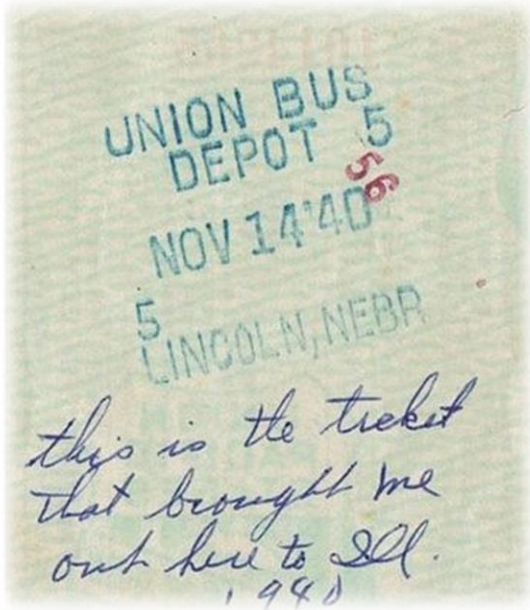 UNION BUS
DEPOT 5
56
NOV 14'40
5
LINCOLN, NEBR
this is the ticket
that brought me
out here to Ill.
1940